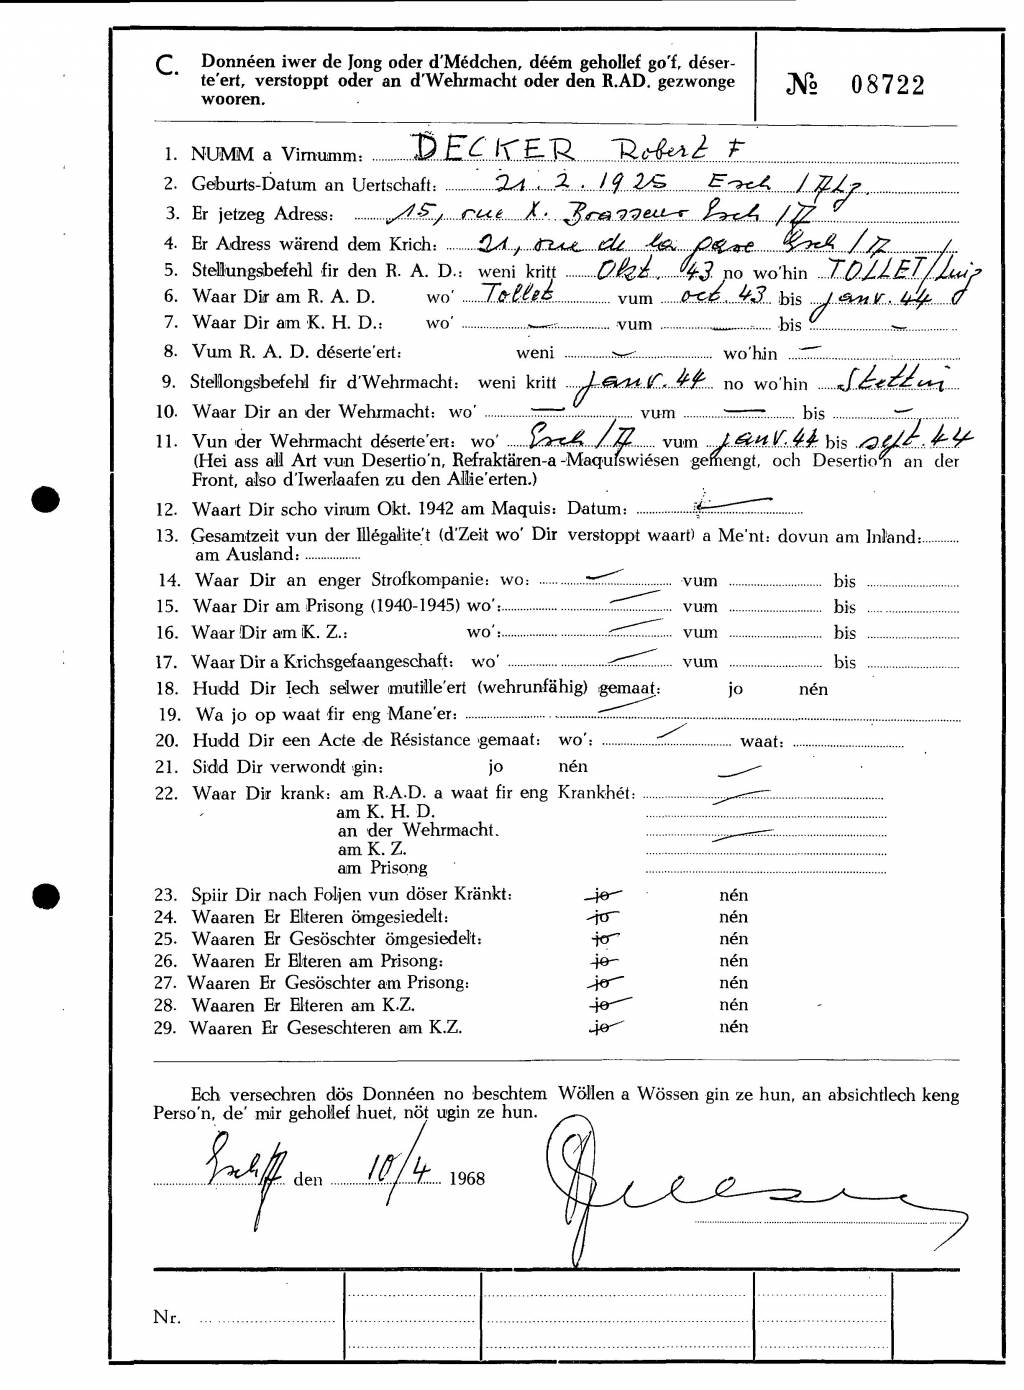 C. Donnéen iwer de Jong oder d'Médchen, déém gehollef go'f, déser-
te'ert, verstoppt oder an d'Wehrmacht oder den R.AD. gezwonge
wooren.
№ 08722
1. NUMM a Virnumm: DECKER Robert F
2. Geburts-Datum an Uertschaft: 21.2.1925 Esch / Alz.
3. Er jetzeg Adress: 15, rue X. Brasseur Esch / A
4. Er Adress wärend dem Krich: 21, rue de la Esch / A
5. Stellungsbefehl fir den R. A. D.: weni kritt Okt. 43 no wo'hin TOLLET/
6. Waar Dir am R. A. D. wo' Tollet vum oct. 43 bis janv. 44
7. Waar Dir am K. H. D.: wo' — vum — bis —
8. Vum R. A. D. déserte'ert: weni — wo'hin —
9. Stellongsbefehl fir d'Wehrmacht: weni kritt janv. 44 no wo'hin Stettin
10. Waar Dir an der Wehrmacht: wo' — vum — bis —
11. Vun der Wehrmacht déserte'ert: wo' Esch / A vum janv. 44 bis sept. 44
(Hei ass all Art vun Desertio'n, Refraktären-a -Maquiswiésen gemengt, och Desertio'n an der
Front, also d'Iwerlaafen zu den Allie'erten.)
12. Waart Dir scho virum Okt. 1942 am Maquis: Datum: —
13. Gesamtzeit vun der Illégalite't (d'Zeit wo' Dir verstoppt waart) a Me'nt: dovun am Inland:
am Ausland:
14. Waar Dir an enger Strofkompanie: wo: — vum bis
15. Waar Dir am Prisong (1940-1945) wo': — vum bis
16. Waar Dir am K. Z.: wo': — vum bis
17. Waar Dir a Krichsgefaangeschaft: wo' — vum bis
18. Hudd Dir Iech selwer mutille'ert (wehrunfähig) gemaat: jo nén
19. Wa jo op waat fir eng Mane'er: —
20. Hudd Dir een Acte de Résistance gemaat: wo': — waat:
21. Sidd Dir verwondt gin: jo nén —
22. Waar Dir krank: am R.A.D. a waat fir eng Krankhét: —
am K. H. D.
an der Wehrmacht. —
am K. Z.
am Prisong
23. Spiir Dir nach Foljen vun döser Kränkt: jo nén
24. Waaren Er Elteren ömgesiedelt: jo nén
25. Waaren Er Gesöschter ömgesiedelt: jo nén
26. Waaren Er Elteren am Prisong: jo nén
27. Waaren Er Gesöschter am Prisong: jo nén
28. Waaren Er Elteren am K.Z. jo nén
29. Waaren Er Geseschteren am K.Z. jo nén
Ech versechren dös Donnéen no beschtem Wöllen a Wössen gin ze hun, an absichtlech keng
Perso'n, de' mir gehollef huet, nöt ugin ze hun.
Esch/A den 10/4 1968
Nr.